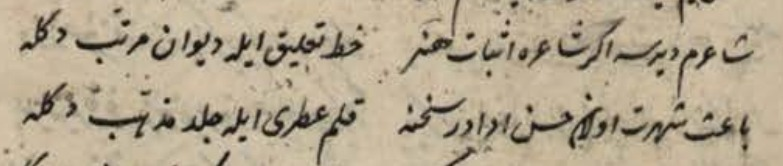 شاعرم ديرسه اكر شاعره اثبات هنر خط تعليق ايله ديوان مرتب دكله
باعث شهرت اولان حسن ادادر سخنه قلم عطرى ايله جلد مذهب دكله